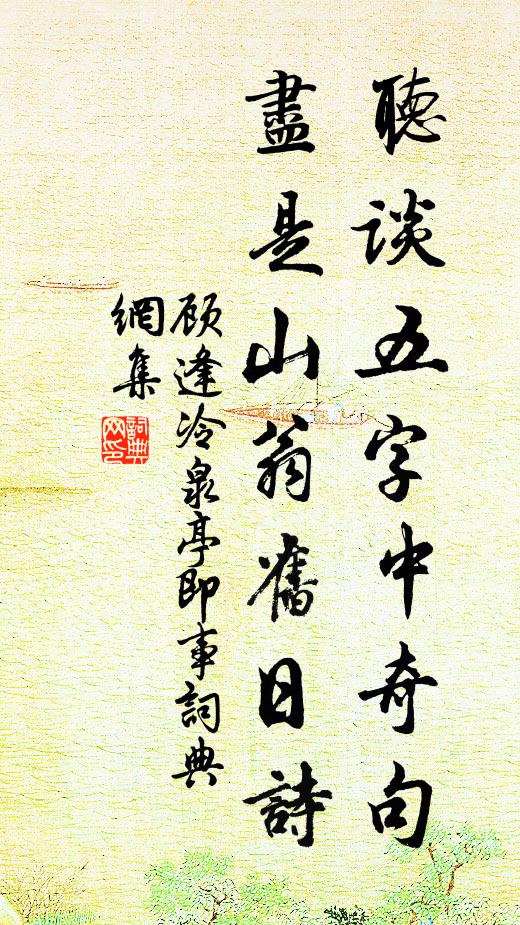 聽談五字中奇句
盡是山翁舊日詩
顾逢冷泉亭即事詞典
網集
詞典
网印